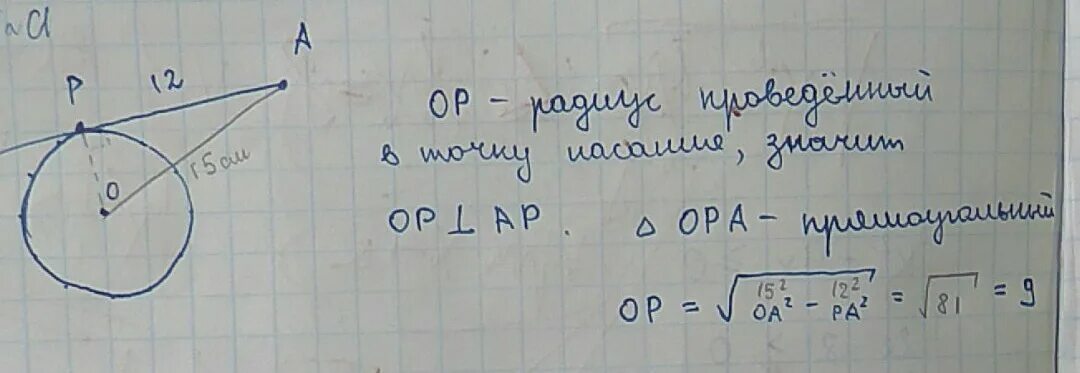 A
P
12
O
15 см
OP – радиус проведённый
в точку касание, значит
OP ⊥ AP. △ OPA – прямоугольный
15² 12²
OP = √OA² – PA² = √81 = 9